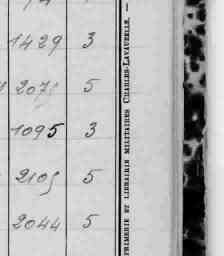 1429 3
207 5
1095 3
2105 5
2044 5
PRIMERIE ET LIBRAIRIE MILITAIRES CHARLES-LAVAUZELLE. —